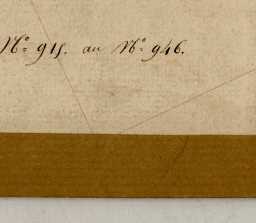 Nº 915. au Nº 946.